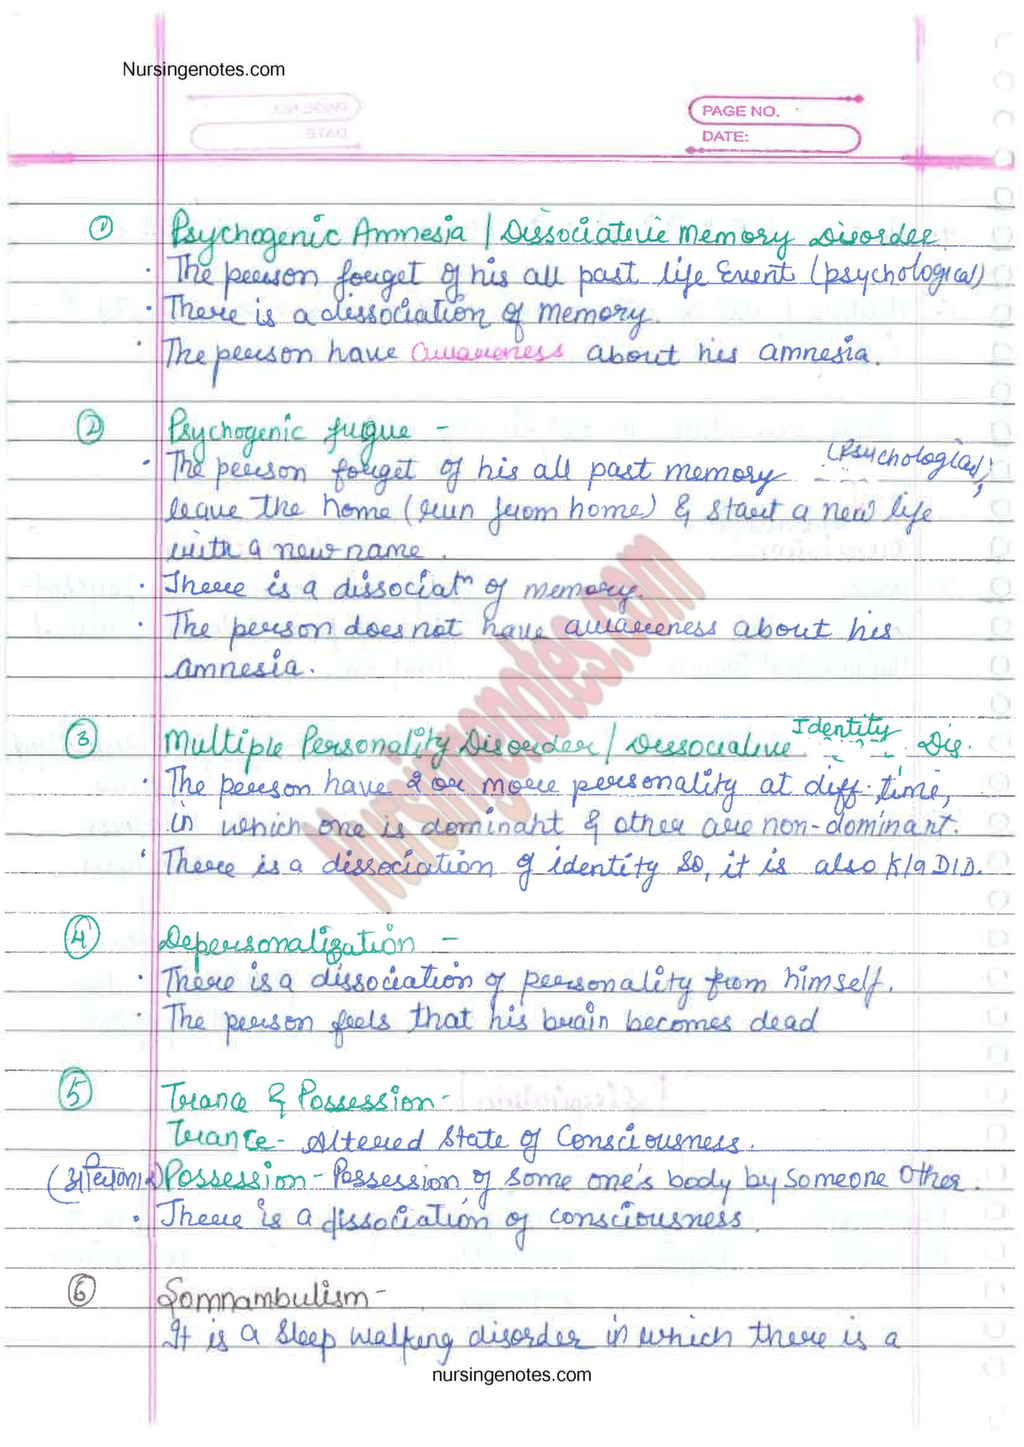 Nursingenotes.com
PAGE NO.
DATE:
① Psychogenic Amnesia / Dissociative Memory Disorder
· The person forget of his all past life Event (psychological)
· There is a dissociation of memory.
· The person have awareness about his amnesia.
② Psychogenic fugue -
· The person forget of his all past memory (Psychological),
leave the home (run from home) & start a new life
with a new name.
· There is a dissociatn of memory.
· The person does not have awareness about his
amnesia.
③ Multiple Personality Disorder / Dissociative Identity Dis.
· The person have 2 or more personality at diff. time,
in which one is dominant & other are non-dominant.
· There is a dissociation of identity so, it is also K/a DID.
④ Depersonalization -
· There is a dissociation of personality from himself.
· The person feels that his brain becomes dead
⑤ Trance & Possession -
Trance - Altered State of Consciousness.
Possession - Possession of some one's body by someone other.
· There is a dissociation of consciousness.
⑥ Somnambulism -
It is a sleep walking disorder in which there is a
Nursingenotes.com
nursingenotes.com